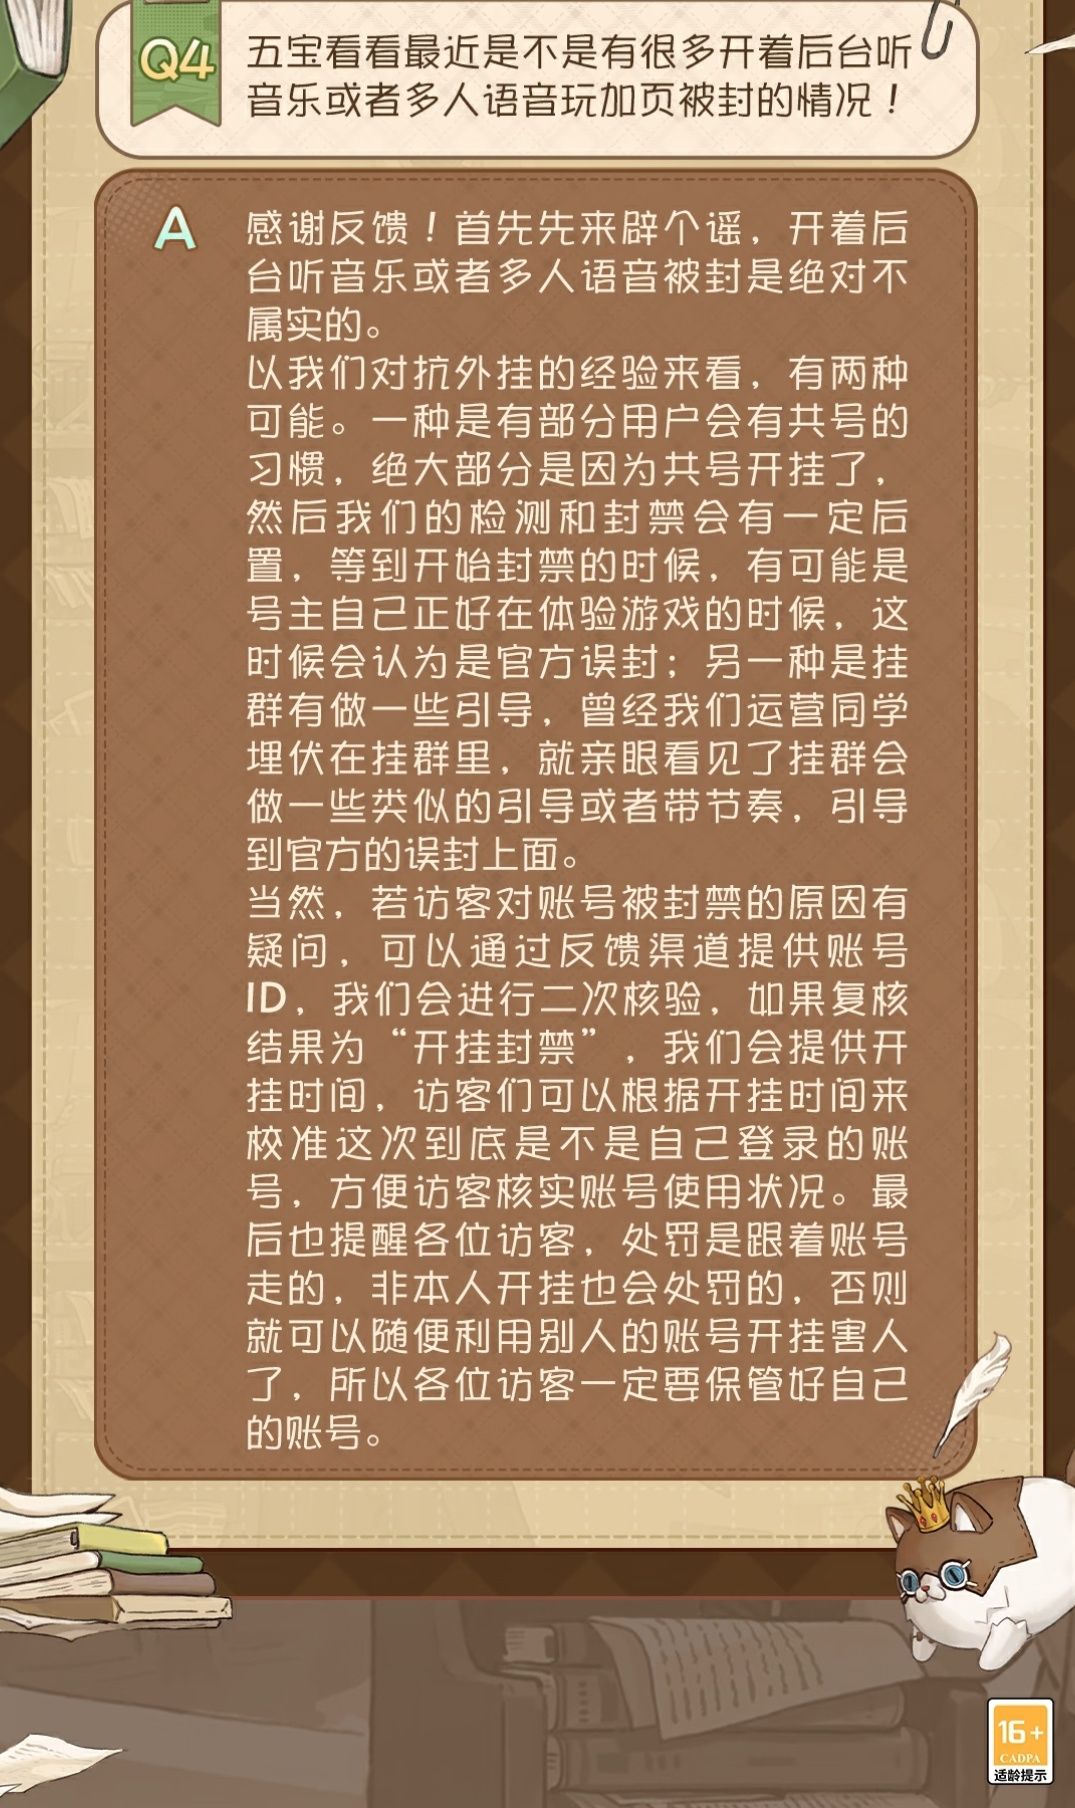 Q4
五宝看看最近是不是有很多开着后台听
音乐或者多人语音玩加页被封的情况！
A
感谢反馈！首先先来辟个谣，开着后
台听音乐或者多人语音被封是绝对不
属实的。
以我们对抗外挂的经验来看，有两种
可能。一种是有部分用户会有共号的
习惯，绝大部分是因为共号开挂了，
然后我们的检测和封禁会有一定后
置，等到开始封禁的时候，有可能是
号主自己正好在体验游戏的时候，这
时候会认为是官方误封；另一种是挂
群有做一些引导，曾经我们运营同学
埋伏在挂群里，就亲眼看见了挂群会
做一些类似的引导或者带节奏，引导
到官方的误封上面。
当然，若访客对账号被封禁的原因有
疑问，可以通过反馈渠道提供账号
ID，我们会进行二次核验，如果复核
结果为“开挂封禁”，我们会提供开
挂时间，访客们可以根据开挂时间来
校准这次到底是不是自己登录的账
号，方便访客核实账号使用状况。最
后也提醒各位访客，处罚是跟着账号
走的，非本人开挂也会处罚的，否则
就可以随便利用别人的账号开挂害人
了，所以各位访客一定要保管好自己
的账号。
16+
CADPA
适龄提示